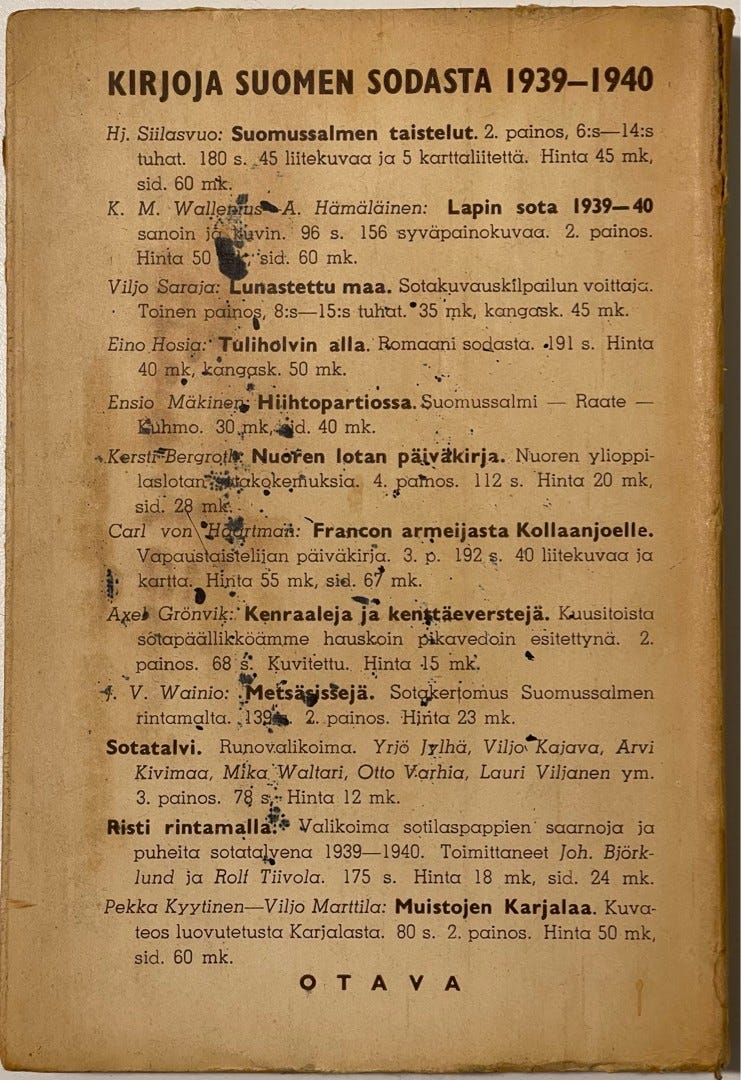 KIRJOJA SUOMEN SODASTA 1939—1940
Hj. Siilasvuo: Suomussalmen taistelut. 2. painos, 6:s—14:s
tuhat. 180 s. 45 liitekuvaa ja 5 karttaliitettä. Hinta 45 mk,
sid. 60 mk.
K. M. Wallenius—A. Hämäläinen: Lapin sota 1939—40
sanoin ja kuvin. 96 s. 156 syväpainokuvaa. 2. painos.
Hinta 50 mk, sid. 60 mk.
Viljo Saraja: Lunastettu maa. Sotakuvauskilpailun voittaja.
Toinen painos, 8:s—15:s tuhat. 35 mk, kangask. 45 mk.
Eino Hosia: Tuliholvin alla. Romaani sodasta. 191 s. Hinta
40 mk, kangask. 50 mk.
Ensio Mäkinen: Hiihtopartiossa. Suomussalmi — Raate —
Kuhmo. 30 mk, sid. 40 mk.
Kersti Bergroth: Nuoren lotan päiväkirja. Nuoren ylioppi-
laslotan sotakokemuksia. 4. painos. 112 s. Hinta 20 mk,
sid. 28 mk.
Carl von Haartman: Francon armeijasta Kollaanjoelle.
Vapaustaistelijan päiväkirja. 3. p. 192 s. 40 liitekuvaa ja
kartta. Hinta 55 mk, sid. 67 mk.
Axel Grönvik: Kenraaleja ja kenttäeverstejä. Kuusitoista
sotapäällikköämme hauskoin pikavedoin esitettynä. 2.
painos. 68 s. Kuvitettu. Hinta 15 mk.
V. Wainio: Metsäsissejä. Sotakertomus Suomussalmen
rintamalta. 139 s. 2. painos. Hinta 23 mk.
Sotatalvi. Runovalikoima. Yrjö Jylhä, Viljo Kajava, Arvi
Kivimaa, Mika Waltari, Otto Varhia, Lauri Viljanen ym.
3. painos. 78 s. Hinta 12 mk.
Risti rintamalla. Valikoima sotilaspappien saarnoja ja
puheita sotatalvena 1939—1940. Toimittaneet Joh. Björk-
lund ja Rolf Tiivola. 175 s. Hinta 18 mk, sid. 24 mk.
Pekka Kyytinen—Viljo Marttila: Muistojen Karjalaa. Kuva-
teos luovutetusta Karjalasta. 80 s. 2. painos. Hinta 50 mk,
sid. 60 mk.
OTAVA